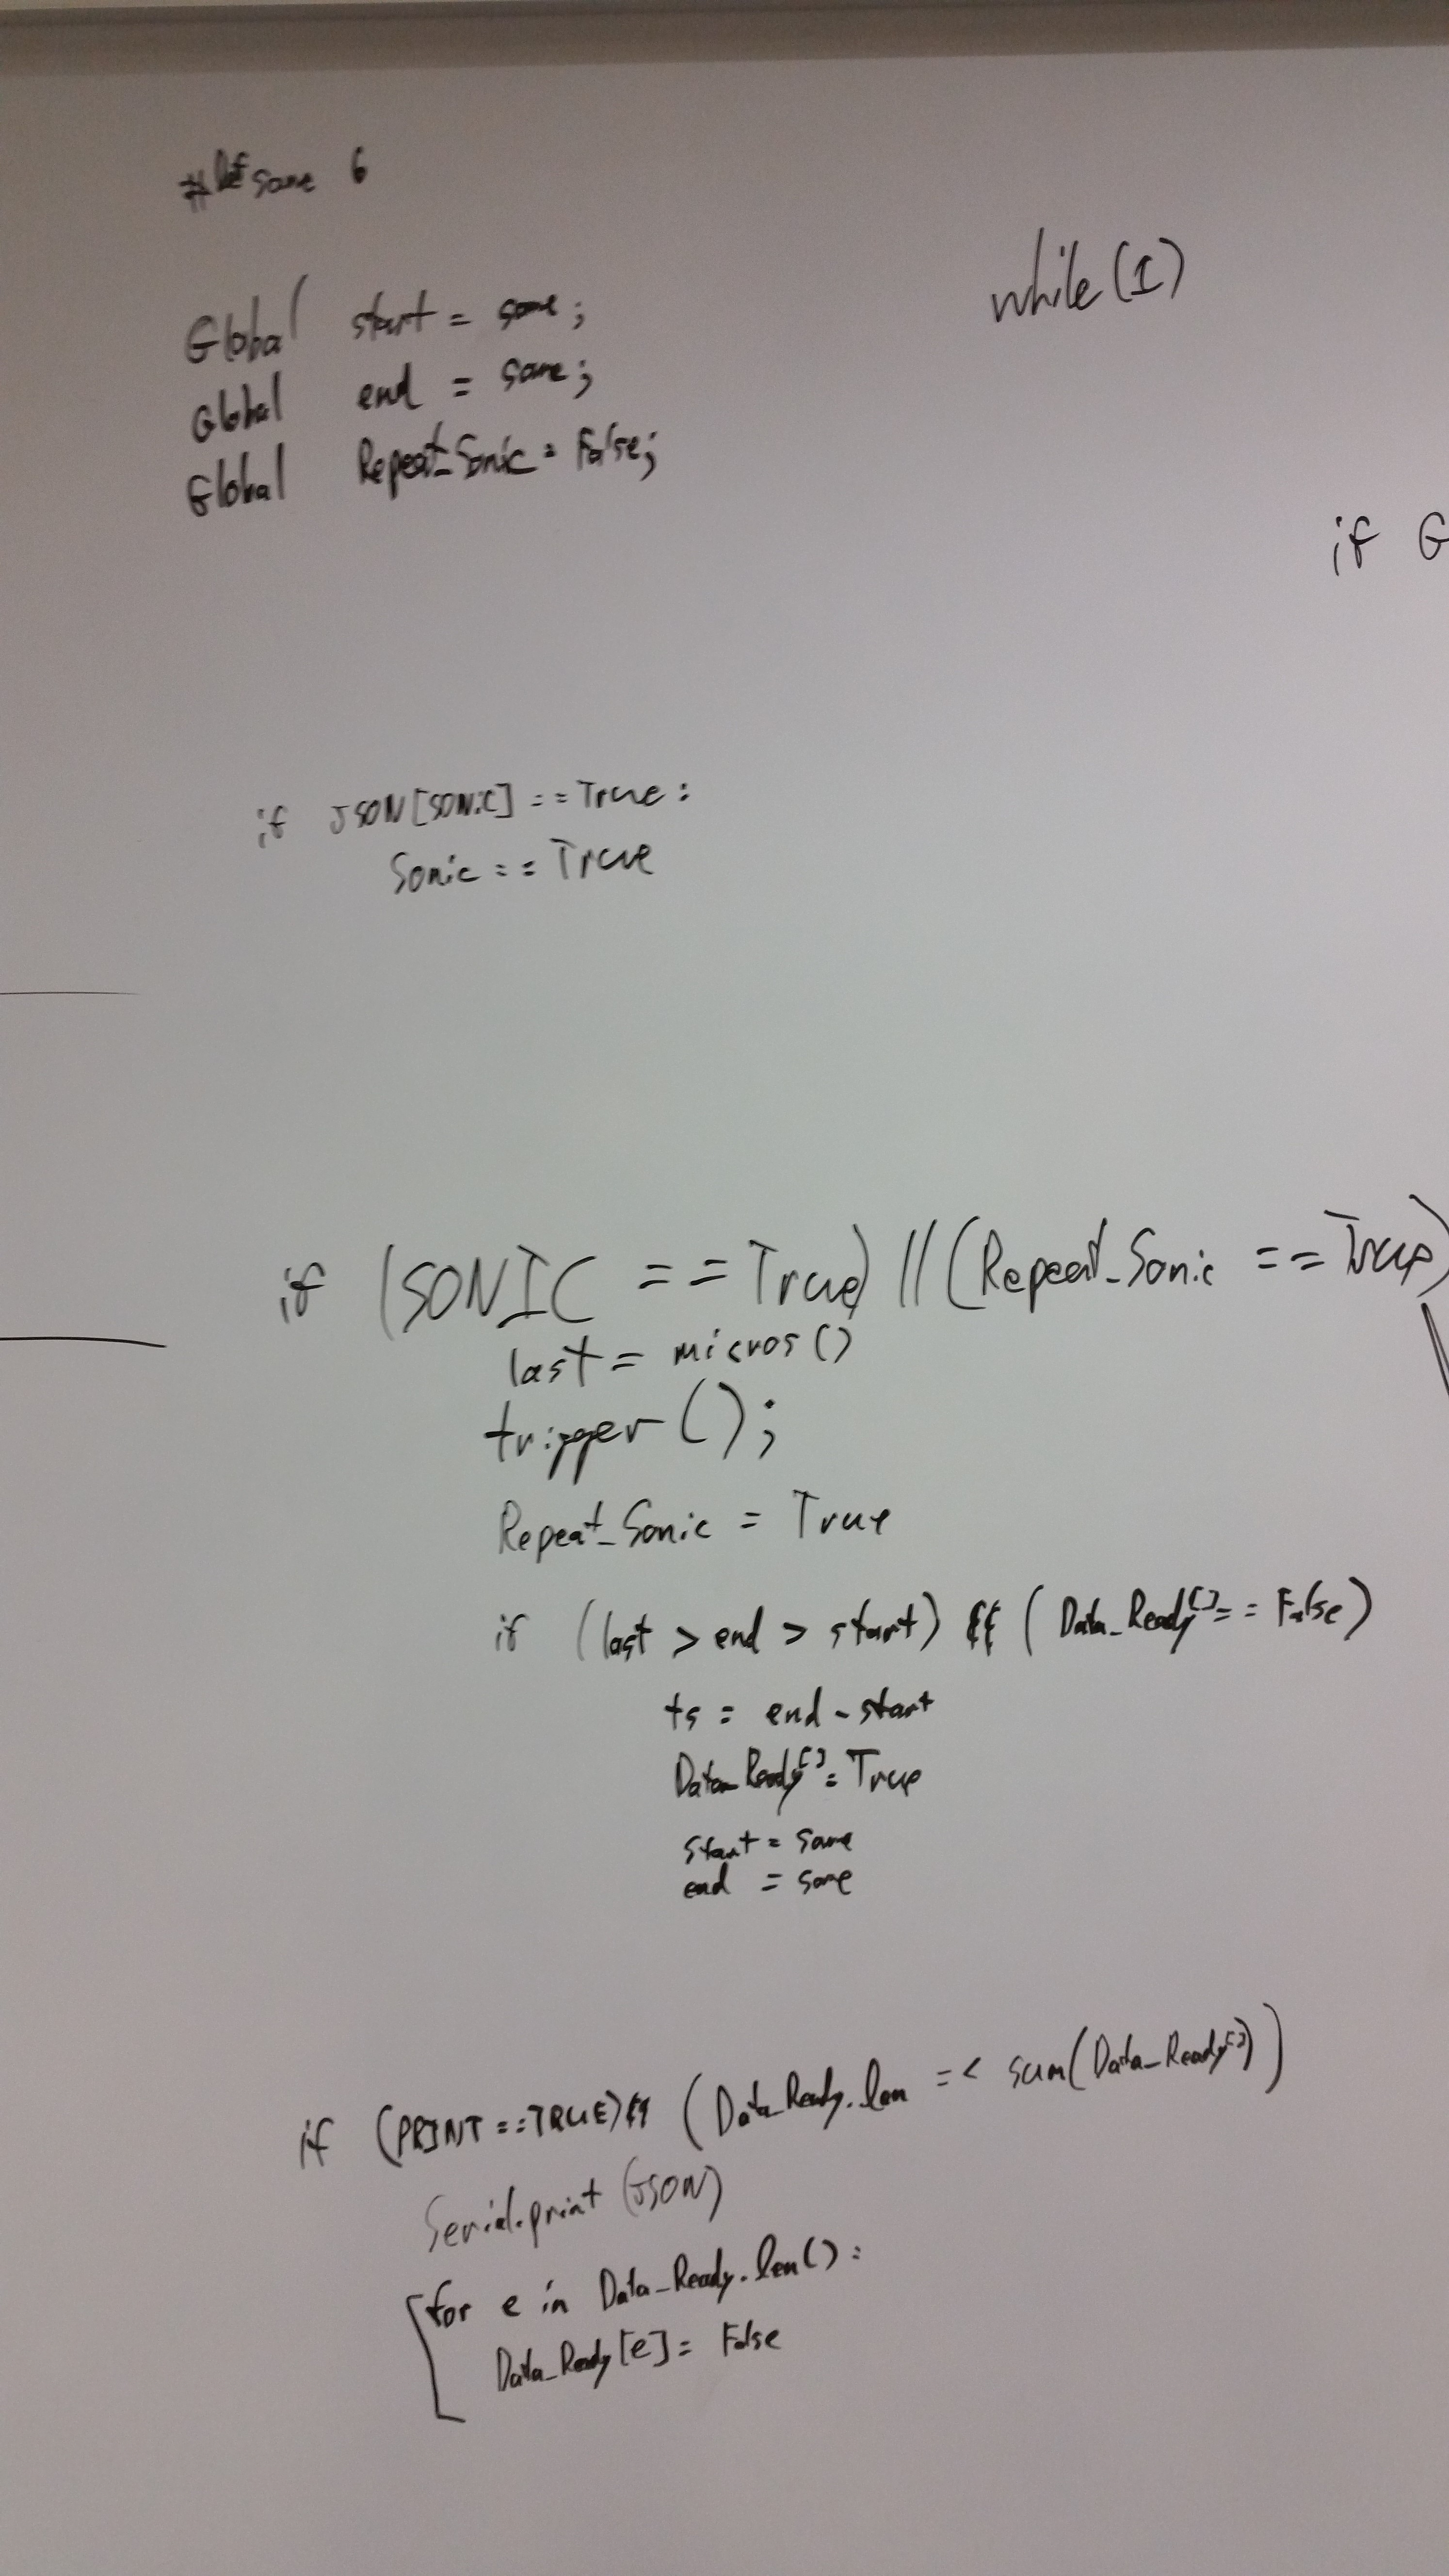 #Def same 6
Global start = same;
Global end = same;
Global Repeat_Sonic = False;
while(1)
if G
if JSON[SONIC] == True :
Sonic == True
if (SONIC == True) || (Repeat_Sonic == True)
last = micros()
trigger();
Repeat_Sonic = True
if (last > end > start) && (Data_Ready[] == False)
ts = end - start
Data_Ready[] = True
start = same
end = same
if (PRINT == TRUE) && (Data_Ready.len =< sum(Data_Ready[]))
Serial.print (JSON)
for e in Data_Ready.len() :
Data_Ready[e] = False